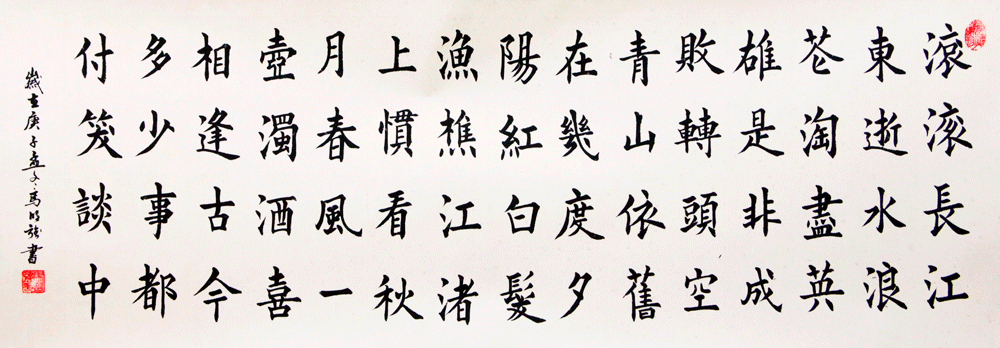 滾滾長江
東逝水浪
花淘盡英
雄是非成
敗轉頭空
青山依舊
在幾度夕
陽紅白髮
漁樵江渚
上慣看秋
月春風一
壺濁酒喜
相逢古今
多少事都
付笑談中
歲在庚子孟冬馬書